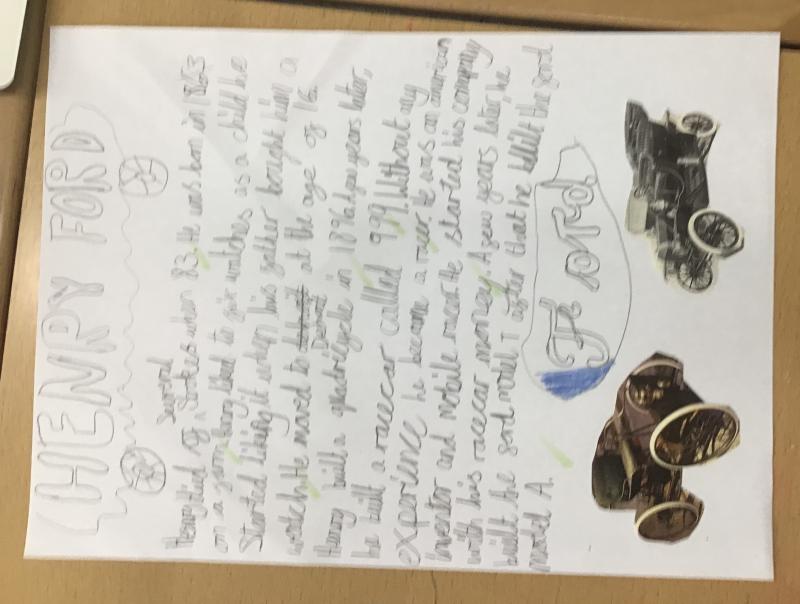 HENRY FORD
Henry died of a Several Strokes when 83. He was born in 1863
on a farm. Henry liked to fix watches as a child he
Started liking it when his father bought him a
watch. He moved to Detroit at the age of 16.
Henry built a quadricycle in 1896. A few years later,
he built a racecar called 999. Without any
experience he became a racer. He was an american
inventor and mobile racer. He started his company
with his racecar money. A few years later, he
built the ford model T after that he built the ford
model A.
Ford